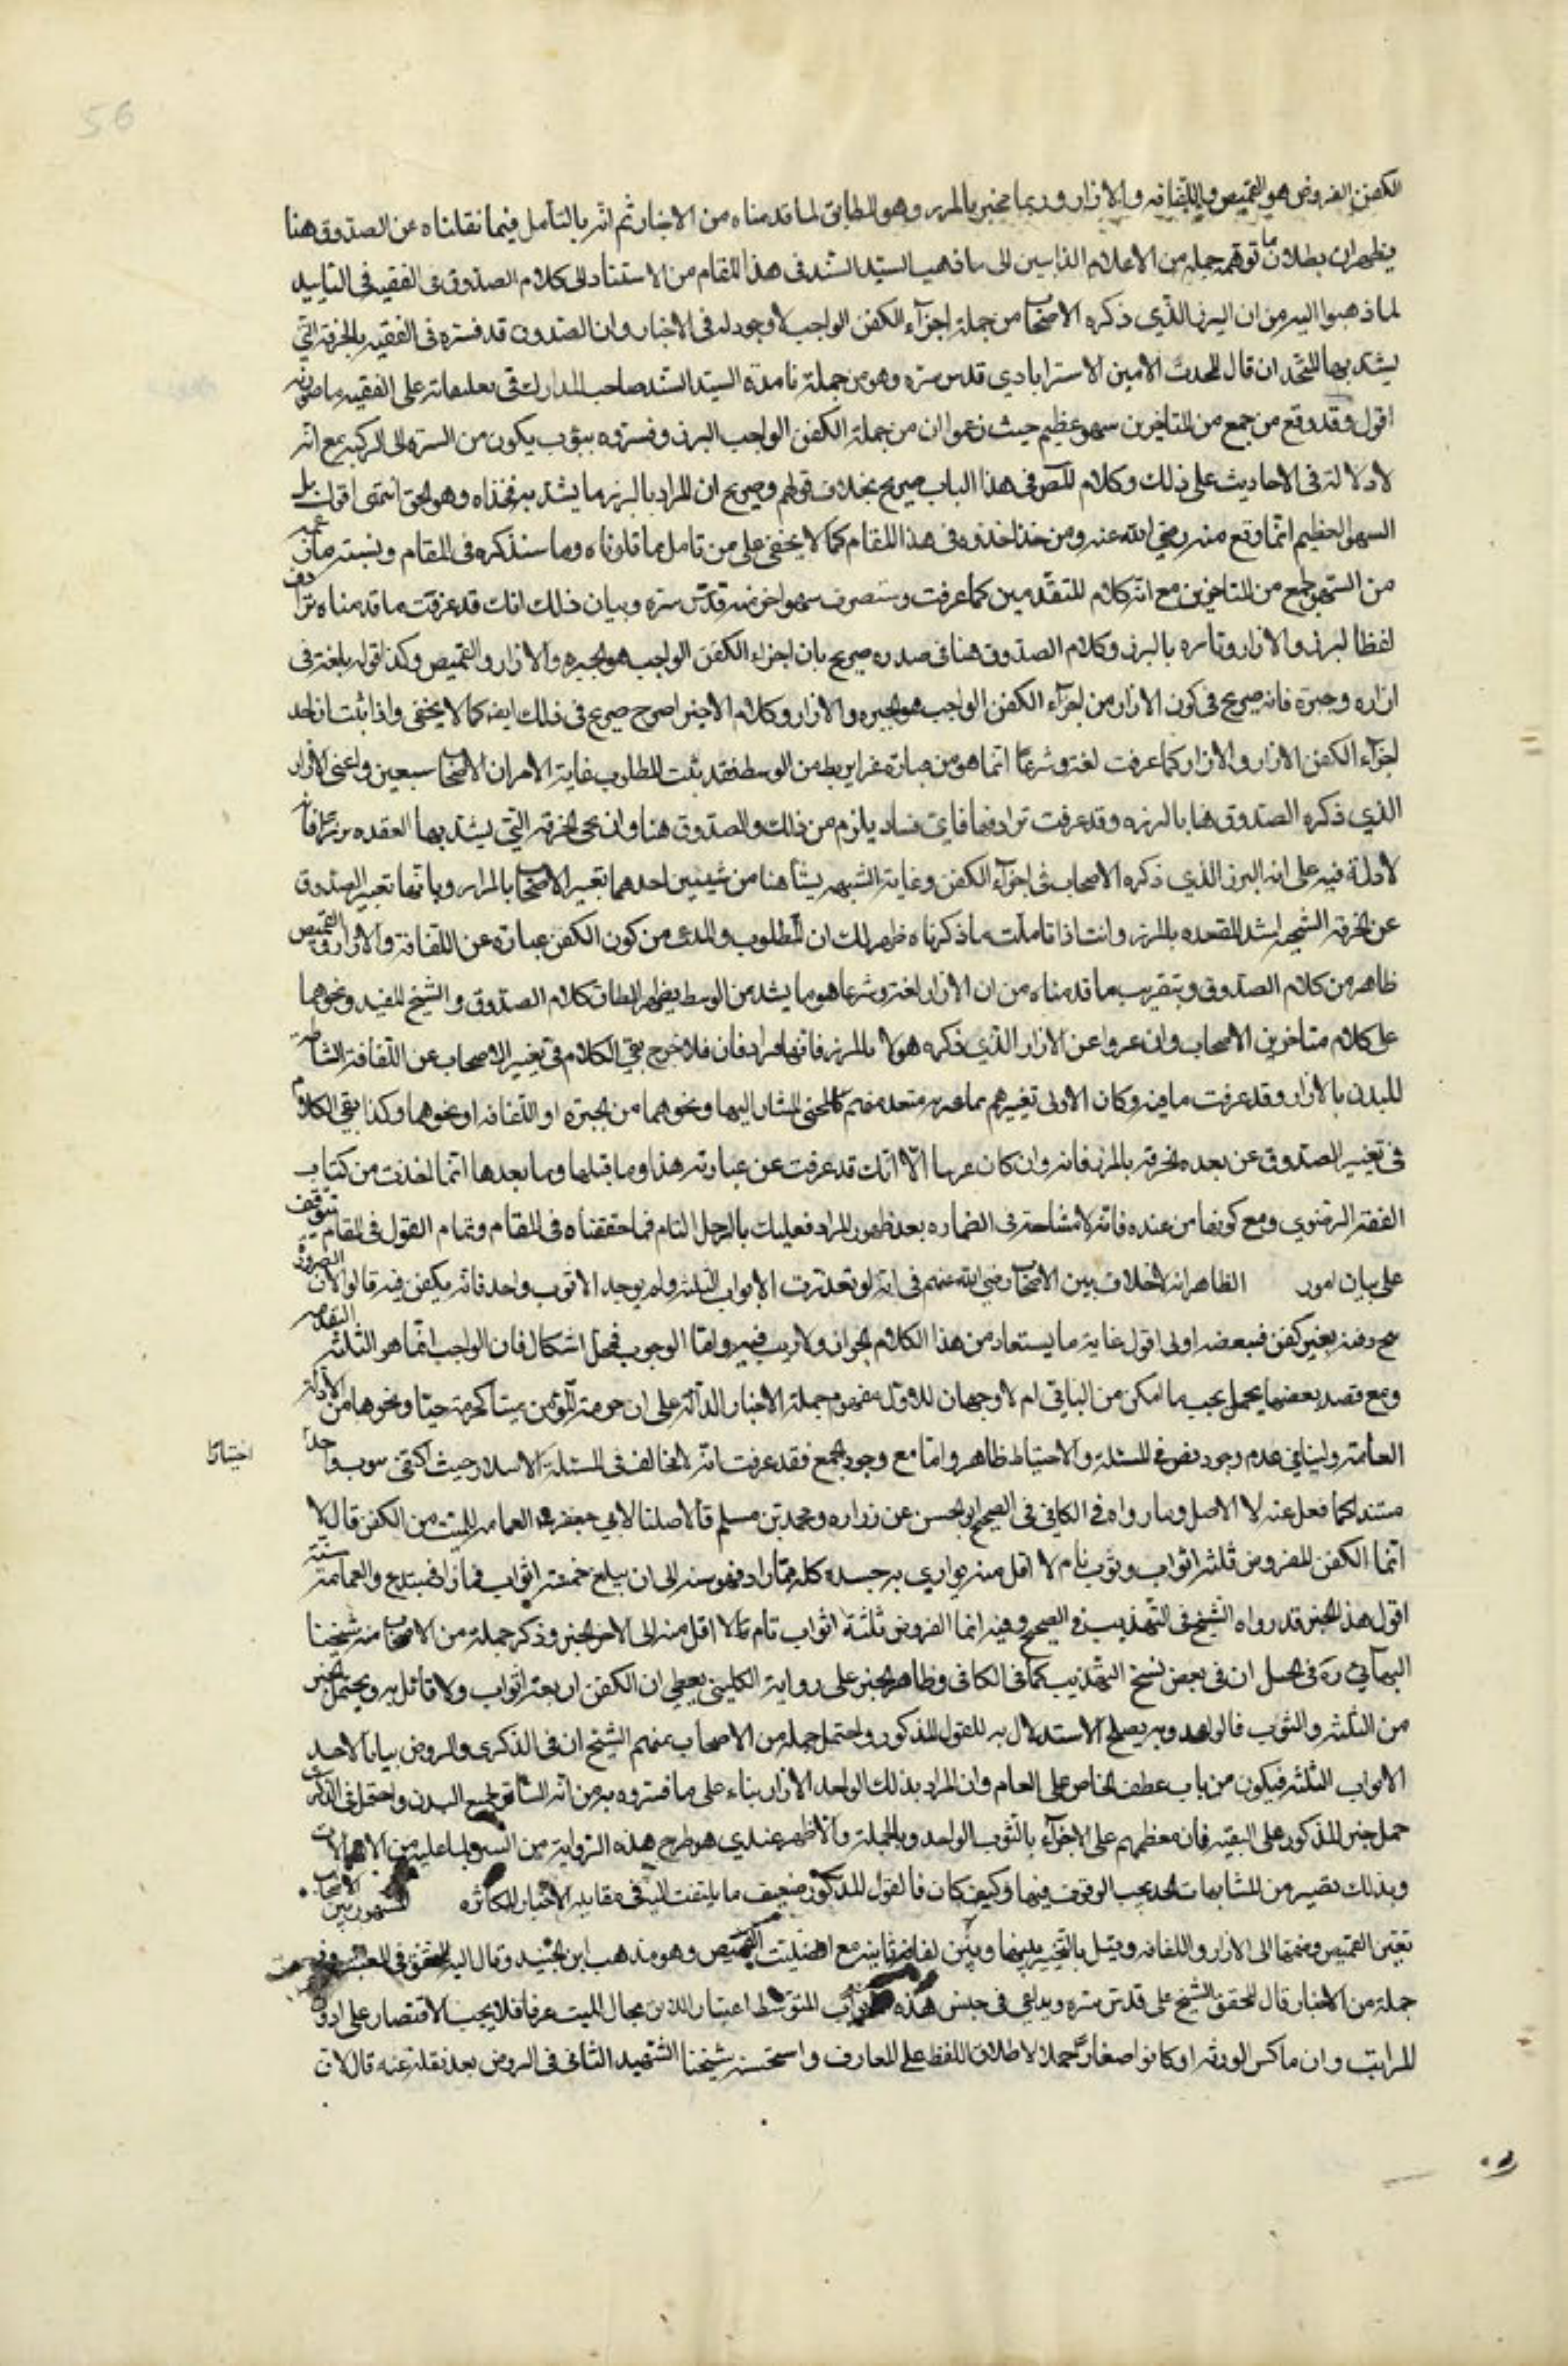 56
الكفن المفروض هو القميص واللفافه والازار وربما يخبر بالمزر وهو المطابق لما قدمناه من الاخبار ثم انه بالتأمل فيما نقلناه عن الصدوق هنا
يظهر لك بطلان ما توهمه جملة من الاعلام الذاهبين الى ما ذهب اليه السيد السند فى هذا المقام من الاستناد الى كلام الصدوق فى الفقيه فى التأييد
لما ذهبوا اليه من ان المئزر الذي ذكره الاصحاب من جملة اجزآء الكفن الواجب لا وجود له فى الاخبار وان الصدوق قد فسره فى الفقيه بالخرقة التى
يشد بها الفخذان قال المحدث الامين الاسترابادي قدس سره وهو من جملة تلامذة السيد السند صاحب المدارك فى تعليقاته على الفقيه ما صورته
اقول وقد وقع من جمع من المتاخرين سهو عظيم حيث زعموا ان من جملة الكفن الواجب المئزر وفسروه بثوب يكون من السرة الى الركبة مع انه
لا دلالة فى الاحاديث على ذلك وكلام المص فى هذا الباب صريح بخلاف قولهم وصريح ان المراد بالمئزر ما يشد به فخذاه وهو الحق انتهى اقول بل
السهو العظيم انما وقع منه رضي الله عنه ومن حذا حذوه فى هذا المقام كما لا يخفى على من تامل بما قلناه وما سنذكره فى المقام ونسبته ما زعمه
من السهو لجمع من المتاخرين مع انه كلام المتقدمين كما عرفت وستعرف سهو اخر منه قدس سره وبيان ذلك انك قد عرفت ما قدمناه ترادف
لفظا لمئزر والازار وتاتزره بالمئزر وكلام الصدوق هنا فى صدره صريح بان اجزاء الكفن الواجب هو الحبره والازار والقميص وكذا قوله يلفه فى
ازاره وحبرة فانه صريح فى كون الازار من اجزآء الكفن الواجب هو الحبره والازار وكلام الاخير اصرح صريح فى ذلك ايضا كما لا يخفى واذا ثبت ان احد
اجزآء الكفن الازار والازار كما عرفت لغة وشرعا انما هو عبارة عما يربط من الوسط فقد ثبت المطلوب غاية الامر ان الاصحاب يعبرون عن الازار
الذي ذكره الصدوق هنا بالمئزر وقد عرفت ترادفهما فاي فساد يلزم من ذلك والصدوق هنا وان سمى الخرقه التى يشد بها المقعده مئزرا فانه
لا دلالة فيه على انه المئزر الذي ذكره الاصحاب فى اجزآء الكفن وغاية الشبهه ينشأ هنا من شيئين احدهما تعبير الاصحاب بالمزار وثانيهما تعبير الصدوق
عن الخرقه التى هى لشد المقعده بالمئزر وانت اذا تاملت ما ذكرناه ظهر لك ان المطلوب والمدعى من كون الكفن عبارة عن اللفافة والازار والقميص
ظاهر من كلام الصدوق وبتقريب ما قدمناه من ان الازار لغة وشرعا هو ما يشد من الوسط يظهر انطباق كلام الصدوق والشيخ المفيد ونحوهما
على كلام متاخرين الاصحاب وان عبروا عن الازار الذي ذكره هولا بالمئزر فانهما مرادفان فلا حرج بقى الكلام فى تعبير الاصحاب عن اللفافة الشاملة
للبدن بالازار وقد عرفت ما فيه وكان الاولى تعبيرهم بما عبر به متقدموهم كالشيخين المشار اليهما ونحوهما من الحبرة او اللفافه او نحوهما وكذا يبقى الكلام
فى تعبير الصدوق عن بعده الخرقه بالمئزر فانه وان كان غريبا الا انك قد عرفت عن عبارته هذا وما قبلها وما بعدها انما اخذت من كتاب
الفقه الرضوي ومع كونها من عنده فانه لا مشاحة فى العباره بعد ظهور المراد فعليك بالتأمل التام فيما حققناه فى المقام وتمام القول فى المقام يتوقف
على بيان امور الظاهر انه لا خلاف بين الاصحاب رضي الله عنهم فى انه لو تعذرت الاثواب الثلثه ولم يوجد الا ثوب واحد فانه يكفن فيه قالوا لان الضرورة
مع دفنه بغير كفن فبعضه اولى اقول غاية ما يستفاد من هذا الكلام الجواز ولا ريب فيه واما الوجوب فمحل اشكال فان الواجب انما هو الثلثه
ومع فقد بعضها يحتمل يجب ما امكن من الباقى ام لا وجهان للاول مفهوم جملة الاخبار الدالة على ان حرمة المؤمن ميتا كحرمته حيا ونحوها من الادلة
العامة ولينافى عدم وجود نص فى المسئلة والاحتياط ظاهر واما مع وجود الجميع فقد عرفت انه لا مخالف فى المسئلة الا سلار حيث اكتفى بثوب واحد
اختيارا
مستندا كما نقل عنه الا الاصل وما رواه فى الكافى فى الصحيح او الحسن عن زراره ومحمد بن مسلم قالا قلنا لابى جعفر ع العمامه للميت من الكفن قال لا
انما الكفن المفروض ثلثه اثواب وثوب تام لا اقل منه يوارى به جسده كله فما زاد فهو سنة الى ان يبلغ خمسة اثواب فما زاد فمبتدع والعمامة سنة
اقول هذا الخبر قد رواه الشيخ فى التهذيب فى الصحيح وفيه انما المفروض ثلثة اثواب تام لا اقل منه الى الاخر الخبر وذكر جملة من الاصحاب منهم شيخنا
البهائى ره فى الحبل ان فى بعض نسخ التهذيب كما فى الكافى وظاهر الخبر على رواية الكلينى يعطى ان الكفن اربعة اثواب ولا قائل به ويحتمل التخيير
من الثلثه والثوب فالواحد وبه يصلح الاستدلال به للقول المذكور واحتمل جملة من الاصحاب منهم الشيخان فى الذكرى والروض بيانا لاحد
الاثواب الثلثه فيكون من باب عطف الخاص على العام وان المراد بذلك الواحد الازار بناء على ما فسروه به من انه الشامل لجميع البدن واحتمل فى الذكرى
حمل خبر المذكور على التقيه فان معظمهم على الاجزآء بالثوب الواحد وبالجملة والاظهر عندى هو طرح هذه الرواية من البين لما عليه من الاجمالات
وبذلك تصير من المتشابهات التى يجب الوقوف فيها وكيف كان فالقول المذكور ضعيف ما يلتفت اليه فى مقابلة الاخبار المتكاثره المشهور بين الاصحاب
تعيين القميص وضمها الى الازار واللفافه وقيل بالتخيير بينها وبين لفافة ثانيه مع افضليت القميص وهو مذهب ابن الجنيد وقال اليه المحقق فى المعتبر
جملة من الاخبار قال المحقق الشيخ على قدس سره ويراعى فى جنس هذه الاثواب المتوسط اعتبار اللائق بحال الميت عرفا فلا يجب الاقتصار على ادون
المراتب وان ماكس الورثه او كانوا صغارا حملا لاطلاق اللفظ على المتعارف واستحسنه شيخنا الشهيد الثانى فى الروض بعد نقله عنه قال لان